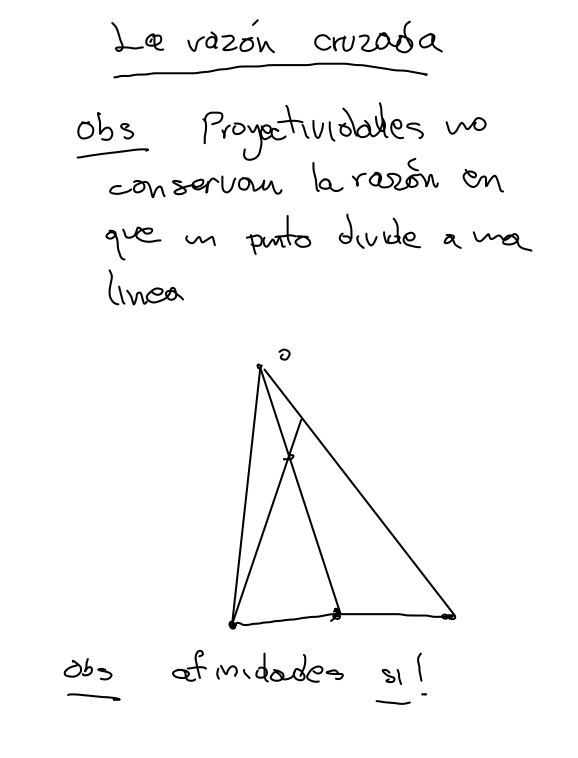 La razón cruzada
obs Proyectividades no
conservan la razón en
que un punto divide a una
linea
O
obs afinidades si!